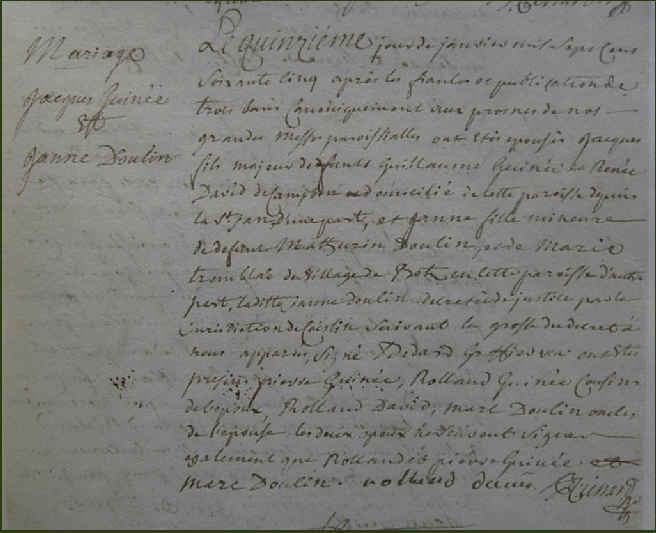 Mariage
Jacques Guinée
&
Janne Doulin
Le quinziéme jour de janvier mil sept cens
soixante cinq après les fiancailles et publication de
trois bans canoniquement aux prosnes de nos
grandes messes paroissialles ont étés epousés Jacques
fils majeur de defunts Guillaume Guinée et Renée
David de Campbon et domicilié en cette paroisse depuis
la St Jan d'une part, et Janne fille mineure
de defunt Mathurin Doulin, et de Marie
du village de en cette paroisse d'autre
part, laditte janne doulin decretée de justice par la
jurisdiction de Coislin suivant la grosse du decret à
nous apparue, signé Bedard Greffier ont étés
presens pierre Guinée, Rolland Guinée cousins
de l'epoux Rolland David, marc Doulin oncles
de l'epouse, les deux epoux ne sçavent signer
egalement que Rolland et pierre Guinée et
Marc Doulin. rolland